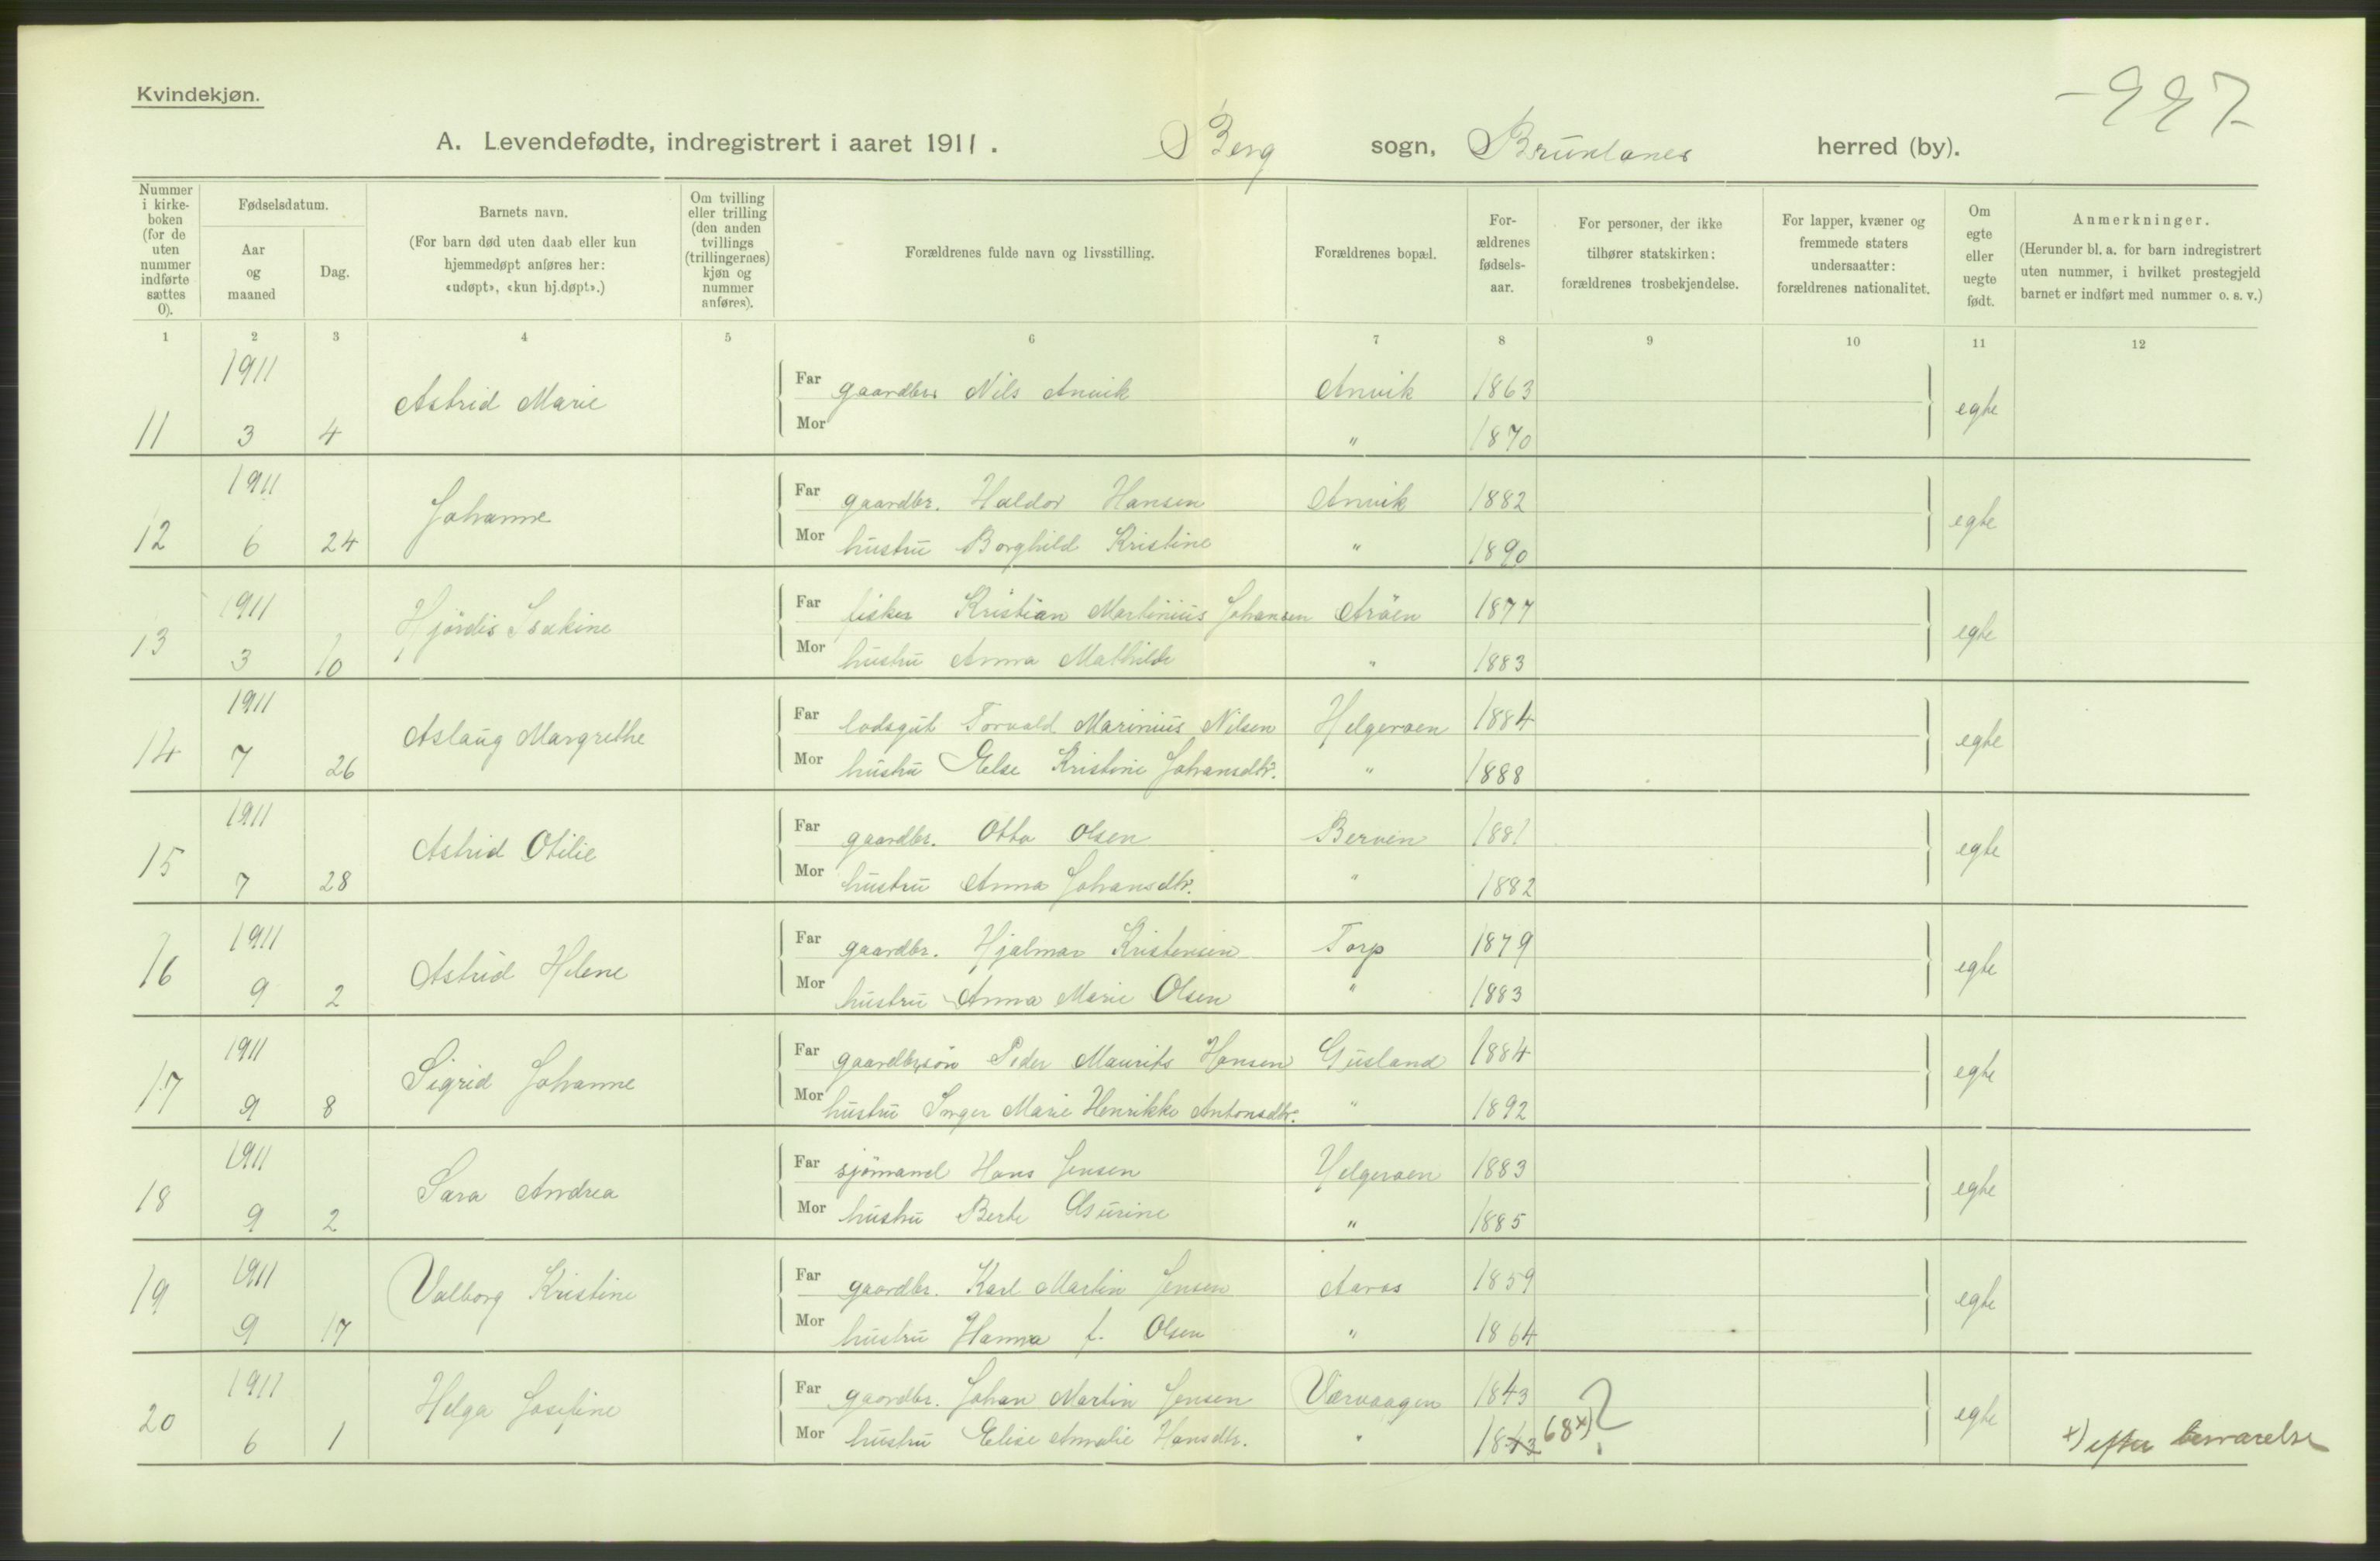 Kvindekjøn.
A. Levendefødte, indregistrert i aaret 1911. Berg sogn, Brunlanes herred (by).
Nummer i kirkeboken (for de uten nummer indførte sættes 0).
Fødselsdatum.
Aar og maaned
Dag.
Barnets navn.
(For barn død uten daab eller kun hjemmedøpt anføres her: «udøpt», «kun hj.døpt».)
Om tvilling eller trilling (den anden tvillings (trillingernes) kjøn og nummer anføres).
Forældrenes fulde navn og livsstilling.
Forældrenes bopæl.
Forældrenes fødselsaar.
For personer, der ikke tilhører statskirken: forældrenes trosbekjendelse.
For lapper, kvæner og fremmede staters undersaatter: forældrenes nationalitet.
Om egte eller uegte født.
Anmerkninger.
(Herunder bl. a. for barn indregistrert uten nummer, i hvilket prestegjeld barnet er indført med nummer o. s. v.)
1 2 3 4 5 6 7 8 9 10 11 12
11 1911 3 4 Astrid Marie Far gaardbr. Nils Anvik Anvik 1863 egte
Mor " 1870
12 1911 6 24 Johanne Far gaardbr. Haldor Hansen Anvik 1882 egte
Mor hustru Borghild Kristine " 1890
13 1911 3 10 Hjördis Isakine Far fisker Kristian Martinius Johansen Aröen 1877 egte
Mor hustru Anna Mathilde " 1883
14 1911 7 26 Aslaug Margrethe Far lodsgut Torvald Marinius Nilsen Helgeroen 1884 egte
Mor hustru Else Kristine Johansdtr. " 1888
15 1911 7 28 Astrid Otilie Far gaardbr. Otto Olsen Berven 1881 egte
Mor hustru Anna Johansdtr. " 1882
16 1911 9 2 Astrid Helene Far gaardbr. Hjalmar Kristensen Torp 1879 egte
Mor hustru Anna Marie Olsen " 1883
17 1911 9 8 Sigrid Johanne Far gaardbrsön Peder Maurits Hansen Gusland 1884 egte
Mor hustru Inger Marie Henrikke Antonsdtr. " 1892
18 1911 9 2 Sara Andrea Far sjömand Hans Jensen Helgeroen 1883 egte
Mor hustru Berte Gurine " 1885
19 1911 9 17 Valborg Kristine Far gaardbr. Karl Martin Jensen Aaros 1859 egte
Mor hustru Hanna f. Olsen " 1864
20 1911 6 1 Helga Josefine Far gaardbr. Johan Martin Jensen Værvaagen 1843 ? egte
Mor hustru Elise Amalie Hansdtr. " 1843 68 x) x) efter besvarelse